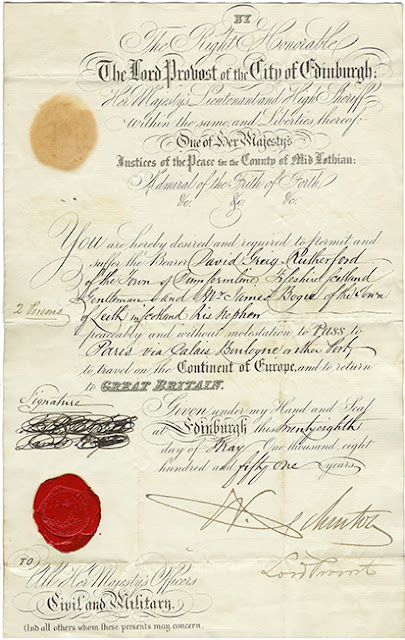 BY
The Right Honorable
The Lord Provost of the City of Edinburgh:
Her Majesty's Lieutenant and High Sheriff
within the same, and Liberties thereof:
One of Her Majesty's
Justices of the Peace for the County of Mid Lothian:
Admiral of the Frith of Forth
&c. &c. &c.
You are hereby desired and required to permit and
suffer the Bearer David Greig Rutherford
of the Town of Dunfermline, Fifeshire Scotland
Gentleman and Mr James Bogie of the Town
2 Persons
of Leith in Scotland His Nephew
peaceably and without molestation to Pass to
Paris via Calais Boulogne or other Ports
to travel on the Continent of Europe, and to return
to GREAT BRITAIN.
Signature
Given under my Hand and Seal
at Edinburgh this Twenty eighth
day of May One thousand eight
hundred and fifty one years
W. Johnston
Lord Provost
TO
All Her Majesty's Officers
Civil and Military.
And all others whom these presents may concern.